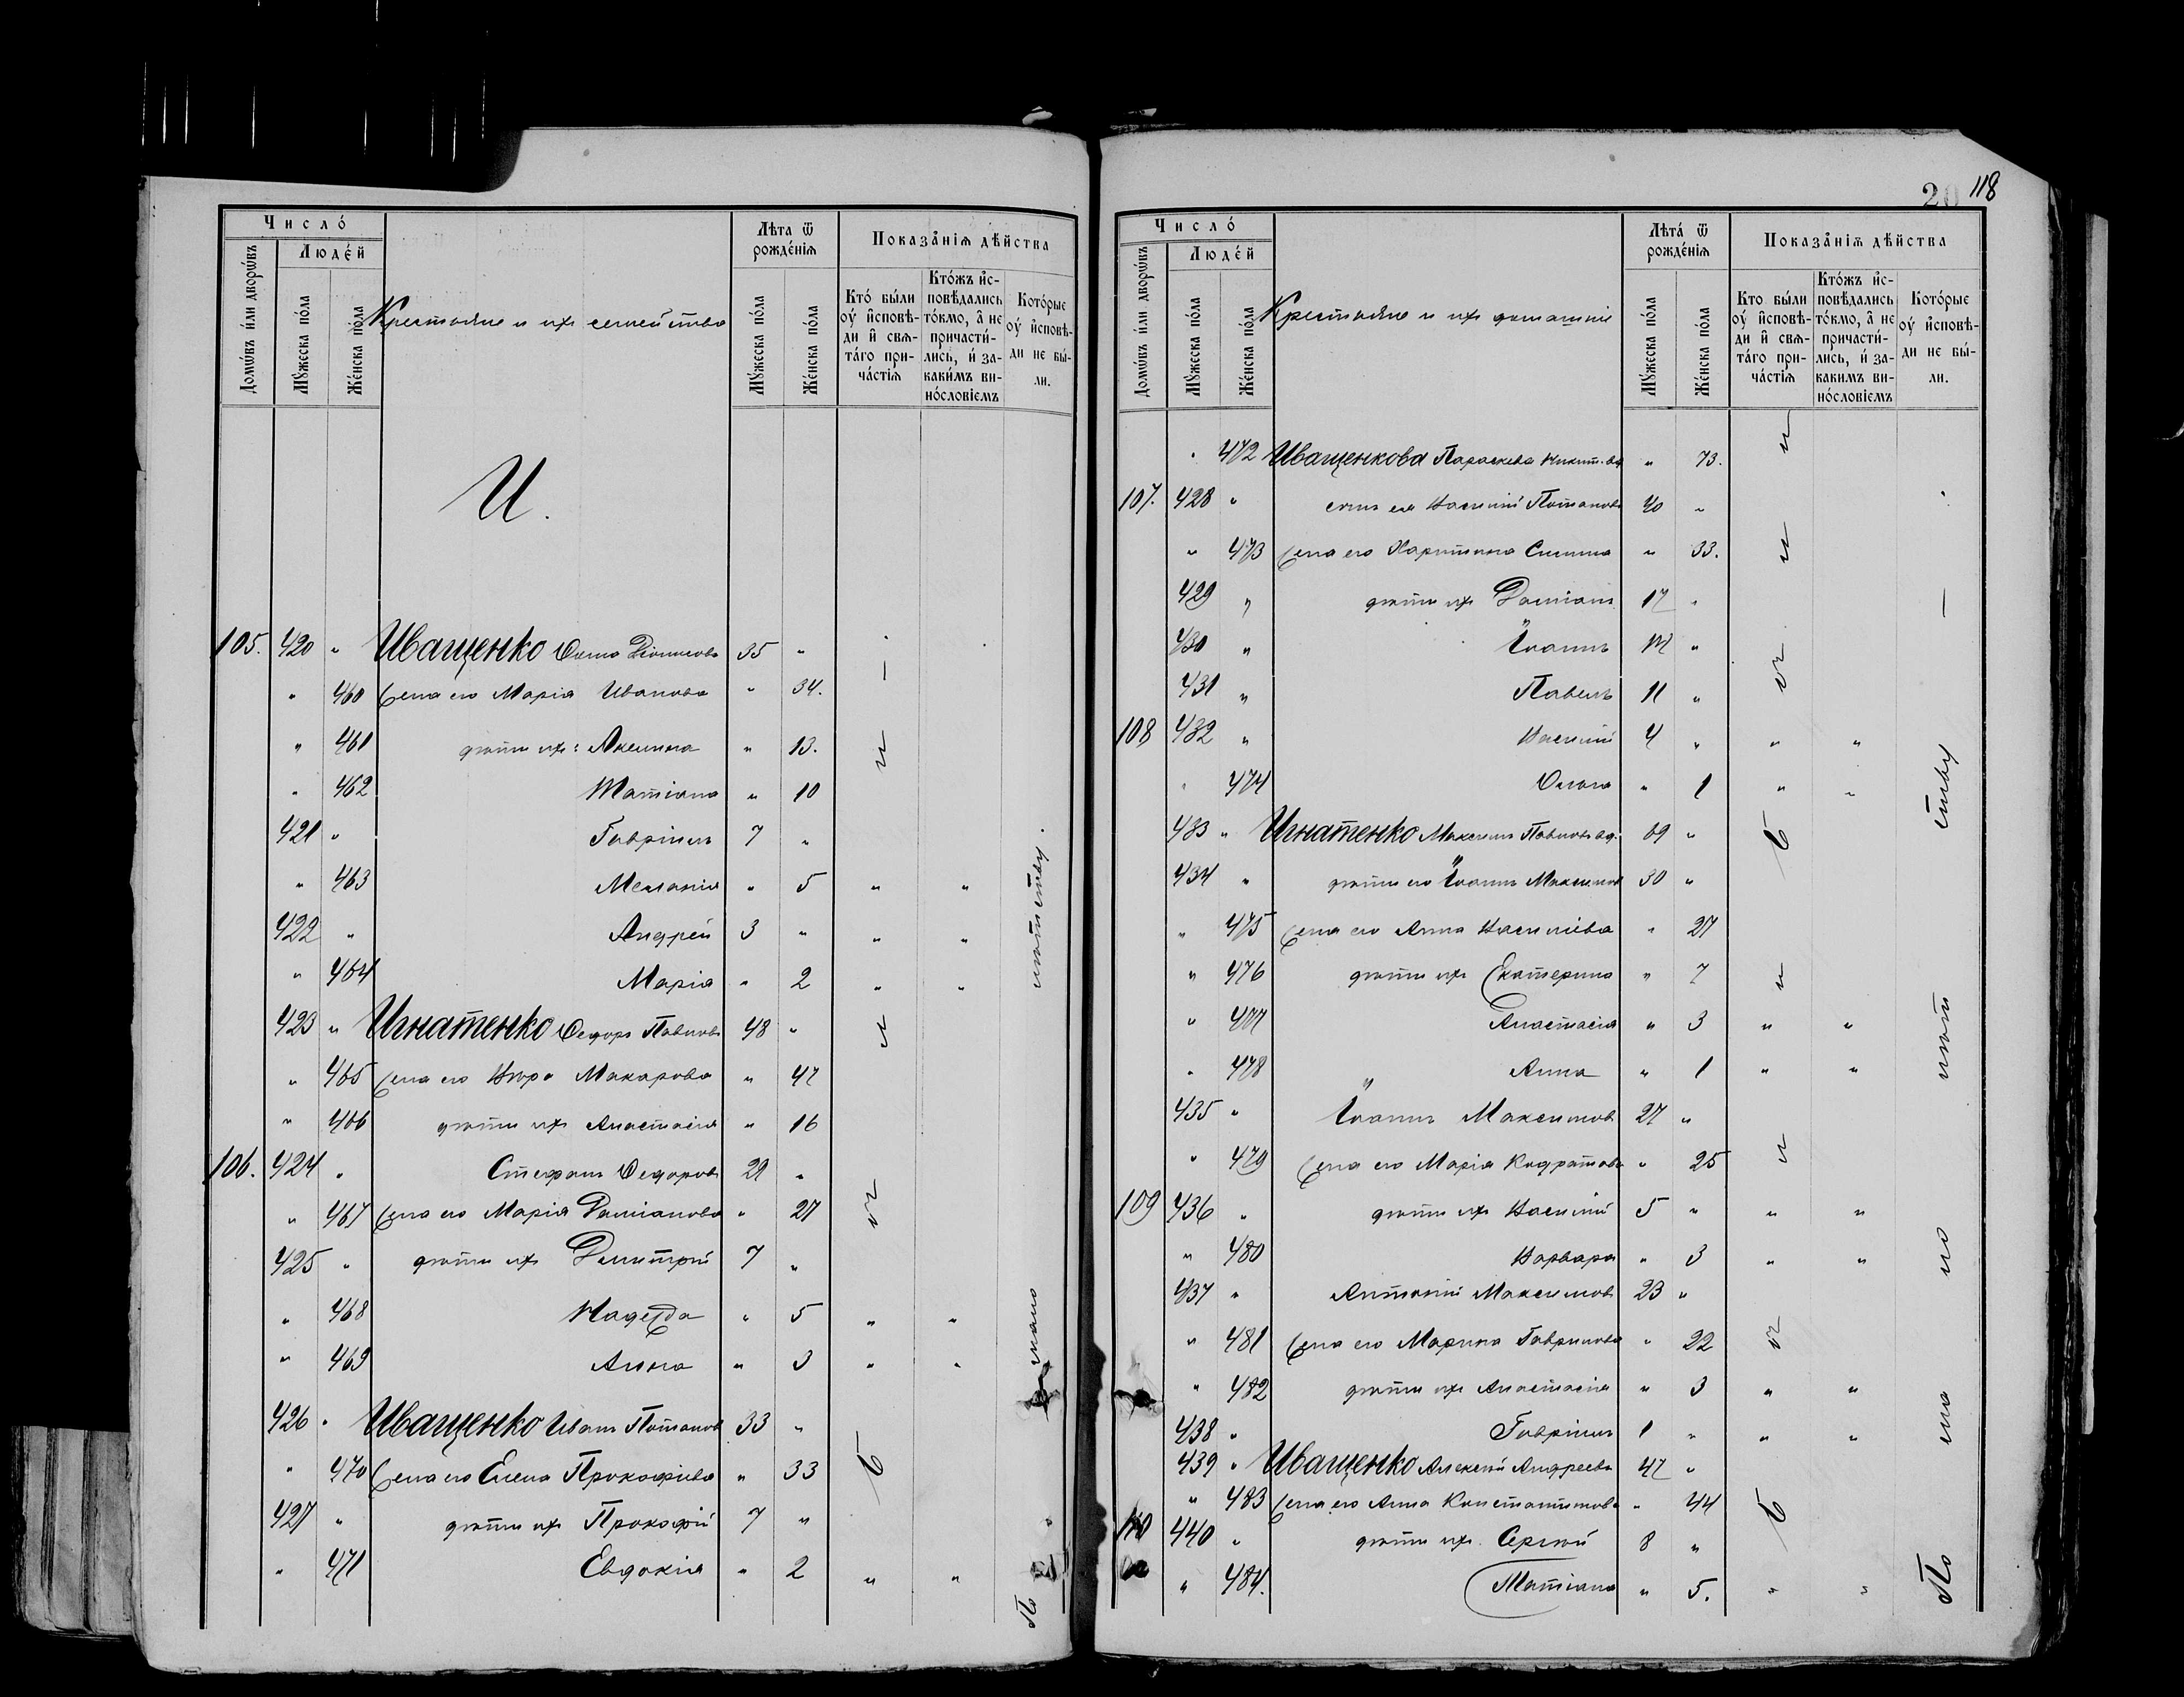 Число́
Домѡ́въ и҆́ли дворѡ́въ
Люде́й
Мꙋ́жеска по́ла
Же́нска по́ла
Крестьяне и ихъ семейства
Лѣ́та ѿ рожде́нїѧ
Мꙋ́жеска по́ла
Же́нска по́ла
Показа̑нїѧ дѣ́йства
Кто́ бы́ли оу҆ и҆сповѣ́ди и҆ свѧта́го прича́стїѧ
Кто́жъ и҆сповѣ́дались то́кмо, а҆ не причасти́лись, и҆ за какимъ вино́словїемъ
Кото́рые оу҆ и҆сповѣ́ди не бы́ли.
И.
105. 420 " Иващенко Ѳома Діонисовъ 35 "
" 460 Жена его Марія Иванова " 34.
" 461 дѣти ихъ: Акелина " 13.
" 462 Татіана " 10
421 " Гавріилъ 7 "
" 463 Меланія " 5 " "
422 " Андрей 3 " " "
" 464 Марія " 2 " "
423 " Игнатенко Ѳедоръ Павловъ 48 "
" 465 Жена его Вѣра Макарова " 47
" 466 дѣти ихъ Анастасія " 16
106. 424 " Стефанъ Ѳедоровъ 29 "
" 467 Жена его Марія Даміанова " 27
425 " дѣти ихъ Димитрій 7 "
" 468 Надежда " 5 " "
" 469 Анна " 3 " "
426 " Иващенко Иванъ Потаповъ 33 "
" 470 Жена его Елена Прокофіева " 33
427 " дѣти ихъ Прокофій 7 "
" 471 Евдокія " 2 " "
По малолѣтству.
118
Число́
Домѡ́въ и҆́ли дворѡ́въ
Люде́й
Мꙋ́жеска по́ла
Же́нска по́ла
Крестьяне и ихъ домашніе
Лѣ́та ѿ рожде́нїѧ
Мꙋ́жеска по́ла
Же́нска по́ла
Показа̑нїѧ дѣ́йства
Кто бы́ли оу҆ и҆сповѣ́ди и҆ свѧта́го прича́стїѧ
Кто́жъ и҆сповѣ́дались то́кмо, а҆ не причасти́лись, и҆ за какимъ вино́словїемъ
Кото́рые оу҆ и҆сповѣ́ди не бы́ли.
" 472 Иващенкова Параскева Никит. вд. " 73.
107. 428 " сынъ ея Василій Потаповъ 40 "
" 473 Жена его Харитина Силина " 33.
429 " дѣти ихъ Даміанъ 17 "
430 " Іоаннъ "
431 " Павелъ 11 "
108 432 " Василій 4 " " "
" 474 Ольга " 1 " "
433 " Игнатенко Максимъ Павловъ вд. 69 "
434 " дѣти его Іоаннъ Максимовъ 30 "
" 475 Жена его Анна Василіева " 27
" 476 дѣти ихъ Екатерина " 7
" 477 Анастасія " 3 " "
" 478 Анна " 1 " "
435 " Іоаннъ Максимовъ 27 "
" 479 Жена его Марія Кодратова " 25
109 436 " дѣти ихъ Василій 5 " " "
" 480 Варвара " 3 " "
437 " Антоній Максимовъ 23 "
" 481 Жена его Марина Гаврилова " 22
" 482 дѣти ихъ Анастасія " 3 " "
438 " Гавріилъ 1 " " "
439 " Иващенко Алексѣй Андреевъ 47 "
" 483 Жена его Анна Константинова " 44
110 440 " дѣти ихъ Сергѣй 8 "
" 484. Татіана " 5. " "
По малолѣтству